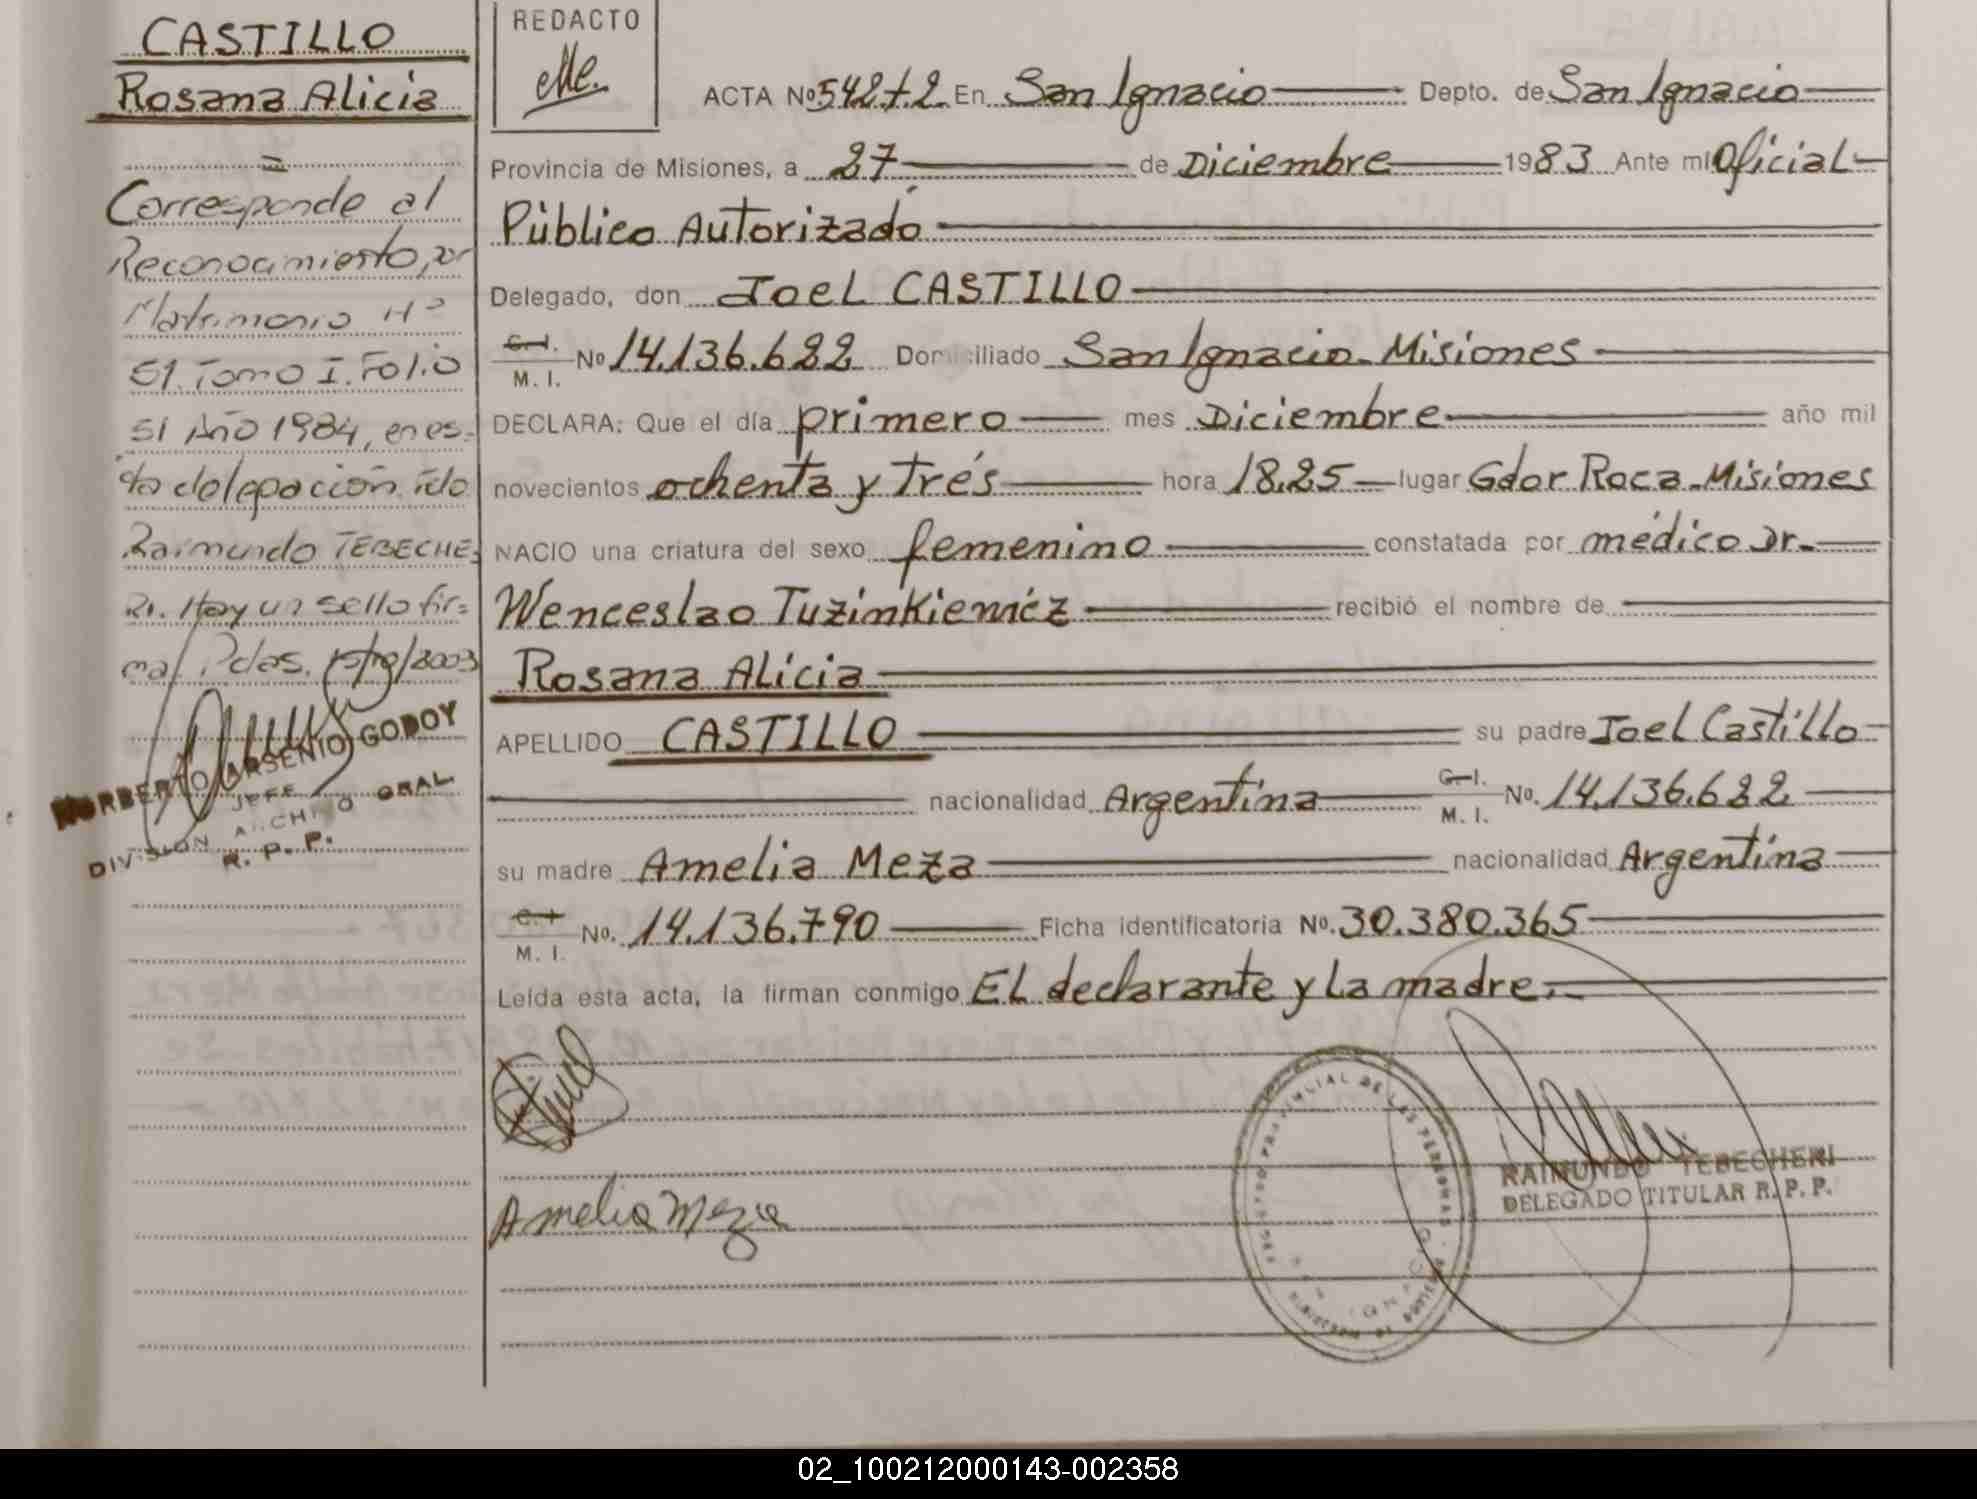 CASTILLO
Rosana Alicia
=
Corresponde al
Reconocimiento por
Matrimonio Nº
51. Tomo I. Folio
51 Año 1984, en es-
ta delegación. Fdo
Raimundo TEBECHE-
RI. Hay un sello fir-
ma. Pdas. 15/10/2003
NORBERTO ARSENIO GODOY
JEFE
DIVISION ARCHIVO GRAL
R. P. P.
REDACTO
ACTA Nº 542 T.2 En San Ignacio Depto. de San Ignacio
Provincia de Misiones, a 27 de Diciembre 1983 Ante mi Oficial
Público Autorizado
Delegado, don Joel CASTILLO
C. I.
M. I. Nº 14.136.622 Domiciliado San Ignacio-Misiones
DECLARA: Que el día primero mes Diciembre año mil
novecientos ochenta y trés hora 18.25 lugar Gdor Roca-Misiones
NACIO una criatura del sexo femenino constatada por médico Dr.
Wenceslao Tuzinkiewicz recibió el nombre de
Rosana Alicia
APELLIDO CASTILLO su padre Joel Castillo
nacionalidad Argentina C. I.
M. I. No. 14.136.622
su madre Amelia Meza nacionalidad Argentina
C. I.
M. I. No. 14.136.790 Ficha identificatoria Nº. 30.380.365
Leída esta acta, la firman conmigo El declarante y La madre.-
Amelia Meza
REGISTRO PROVINCIAL DE LAS PERSONAS
SAN IGNACIO
RAIMUNDO TEBECHERI
DELEGADO TITULAR R. P. P.
02_100212000143-002358